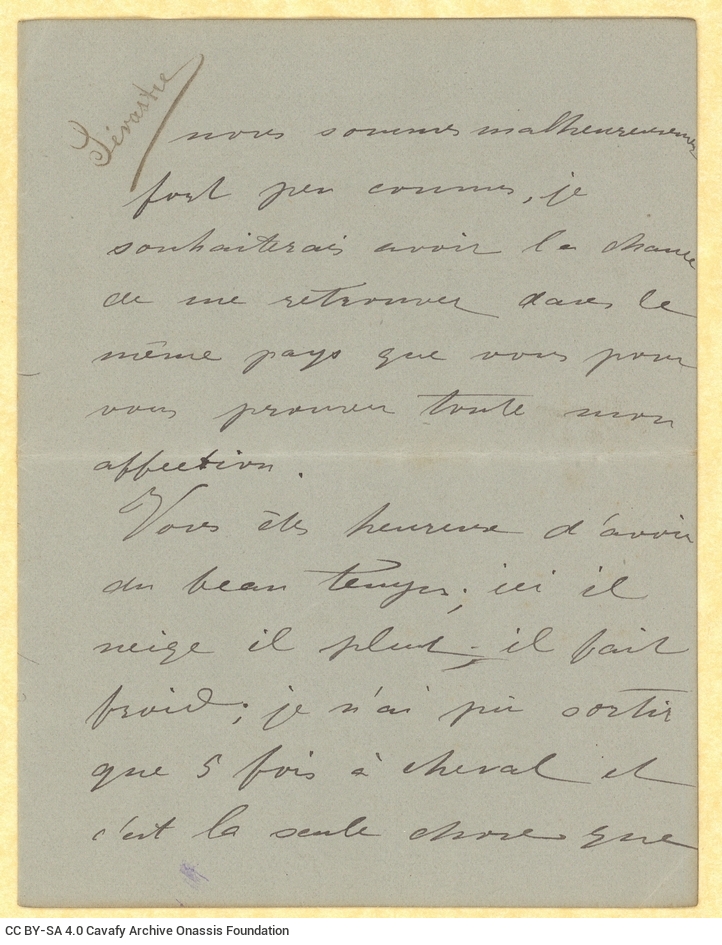 Sévastie
nous sommes malheureusement
fort peu connus, je
souhaiterais avoir la chance
de me retrouver dans le
même pays que vous pour
vous prouver toute mon
affection.
Vous êtes heureux d'avoir
du beau temps; ici il
neige il pleut, il fait
froid; je n'ai pû sortir
que 5 fois à cheval et
c'est la seule chose que
CC BY-SA 4.0 Cavafy Archive Onassis Foundation